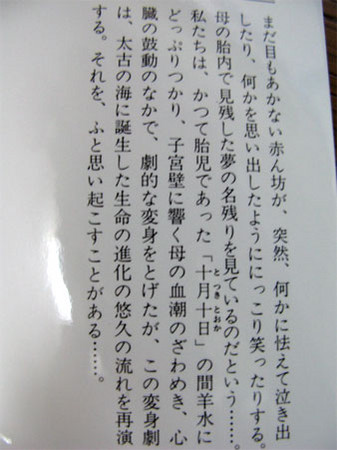 まだ目もあかない赤ん坊が、突然、何かに怯えて泣き出
したり、何かを思い出したようににっこり笑ったりする。
母の胎内で見残した夢の名残りを見ているのだという……。
私たちは、かつて胎児であった「十月十日」の間羊水に
とつきとおか
どっぷりつかり、子宮壁に響く母の血潮のざわめき、心
臓の鼓動のなかで、劇的な変身をとげたが、この変身劇
は、太古の海に誕生した生命の進化の悠久の流れを再演
する。それを、ふと思い起こすことがある……。